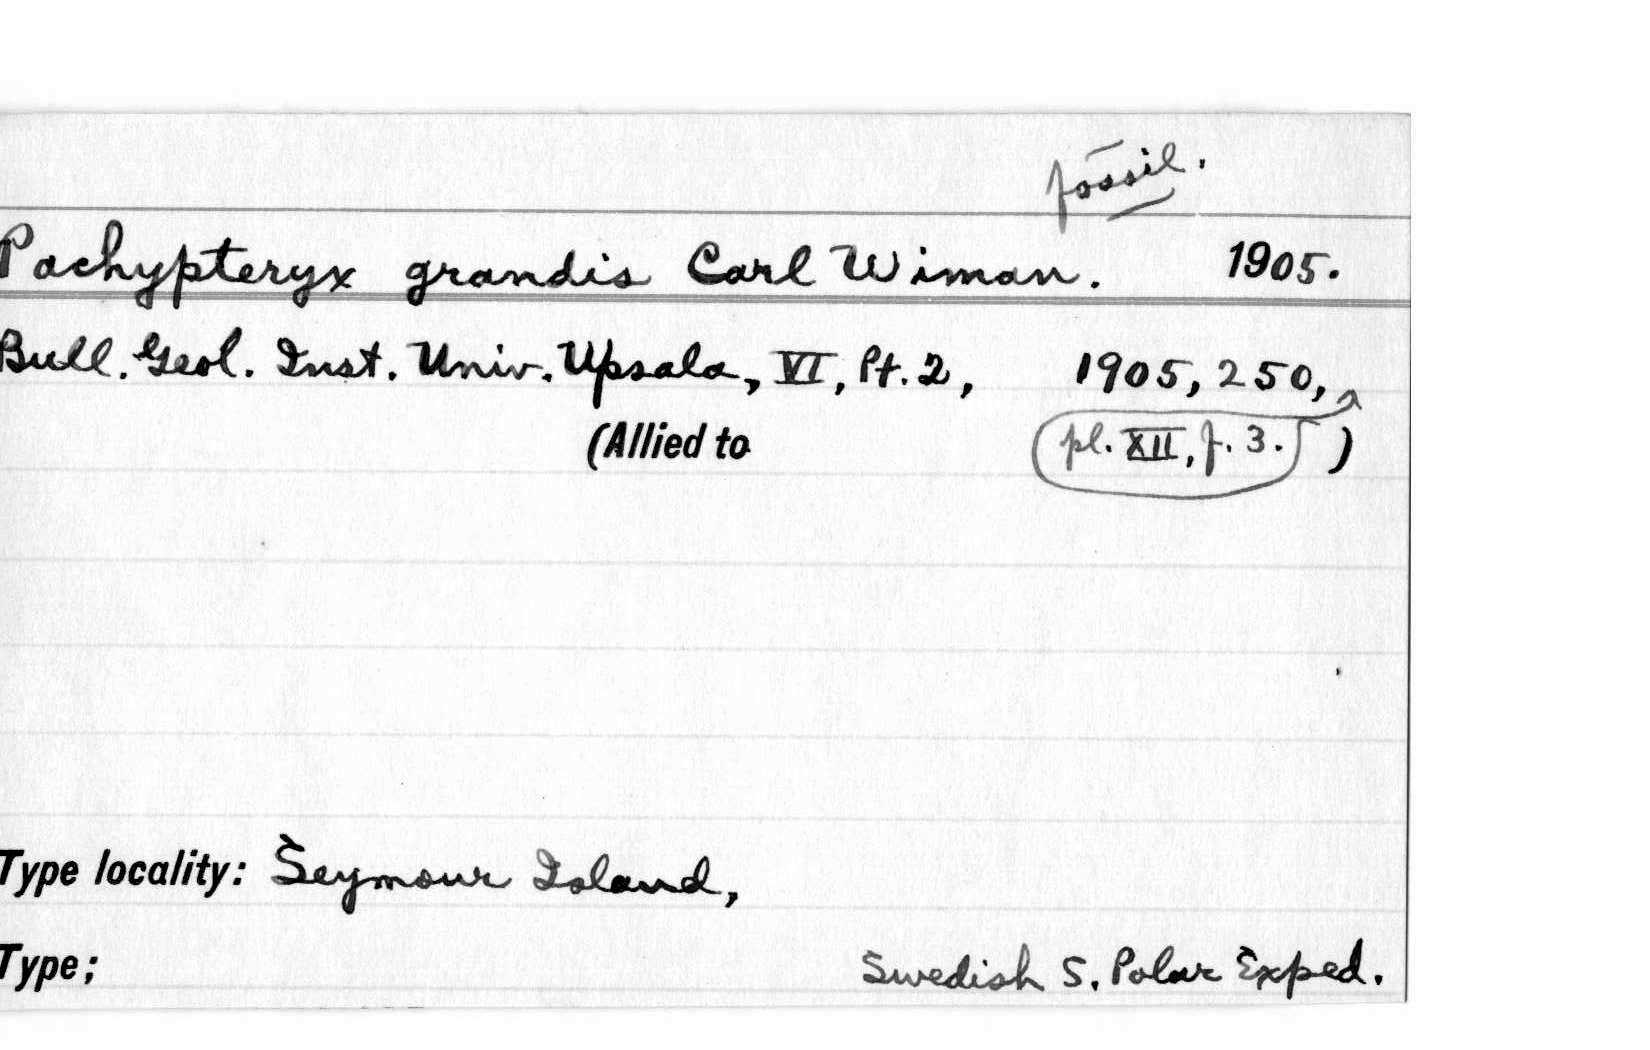 fossil.
Pachypteryx grandis Carl Wiman. 1905.
Bull. Geol. Inst. Univ. Upsala, VI, Pt. 2, 1905, 250,
(Allied to pl. XII, f. 3. )
Type locality: Seymour Island,
Type; Swedish S. Polar Exped.